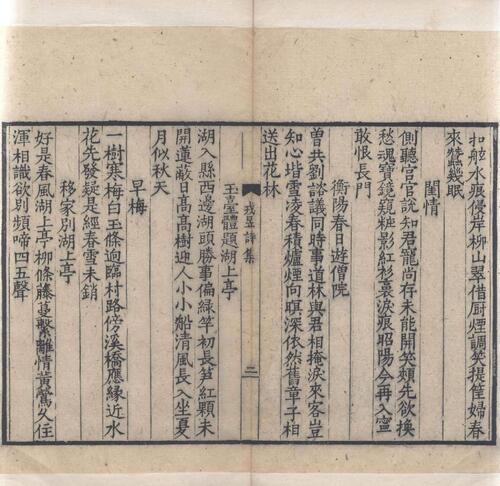 扣舷水痕侵岸柳山翠借厨煙調笑提筐婦春
來蠶幾眠
閨情
側聽宮官說知君寵尚存未能開笑頰先欲換
愁魂寶鏡窺粧影紅衫裛淚痕昭陽今再入寧
敢恨長門
衡陽春日遊僧院
曾共劉諮議同時事道林與君相掩淚來客豈
知心堦雪凌春積爐煙向暝深依然舊童子相
送出花林
戎昱詩集 二
玉臺體題湖上亭
湖入縣西邊湖頭勝事偏綠竿初長笋紅顆未
開蓮蔽日高高樹迎人小小船清風長入坐夏
月似秋天
早梅
一樹寒梅白玉條迥臨村路傍溪橋應緣近水
花先發疑是經春雪未銷
移家別湖上亭
好是春風湖上亭柳條藤蔓繫離情黃鶯久住
渾相識欲別頻啼四五聲